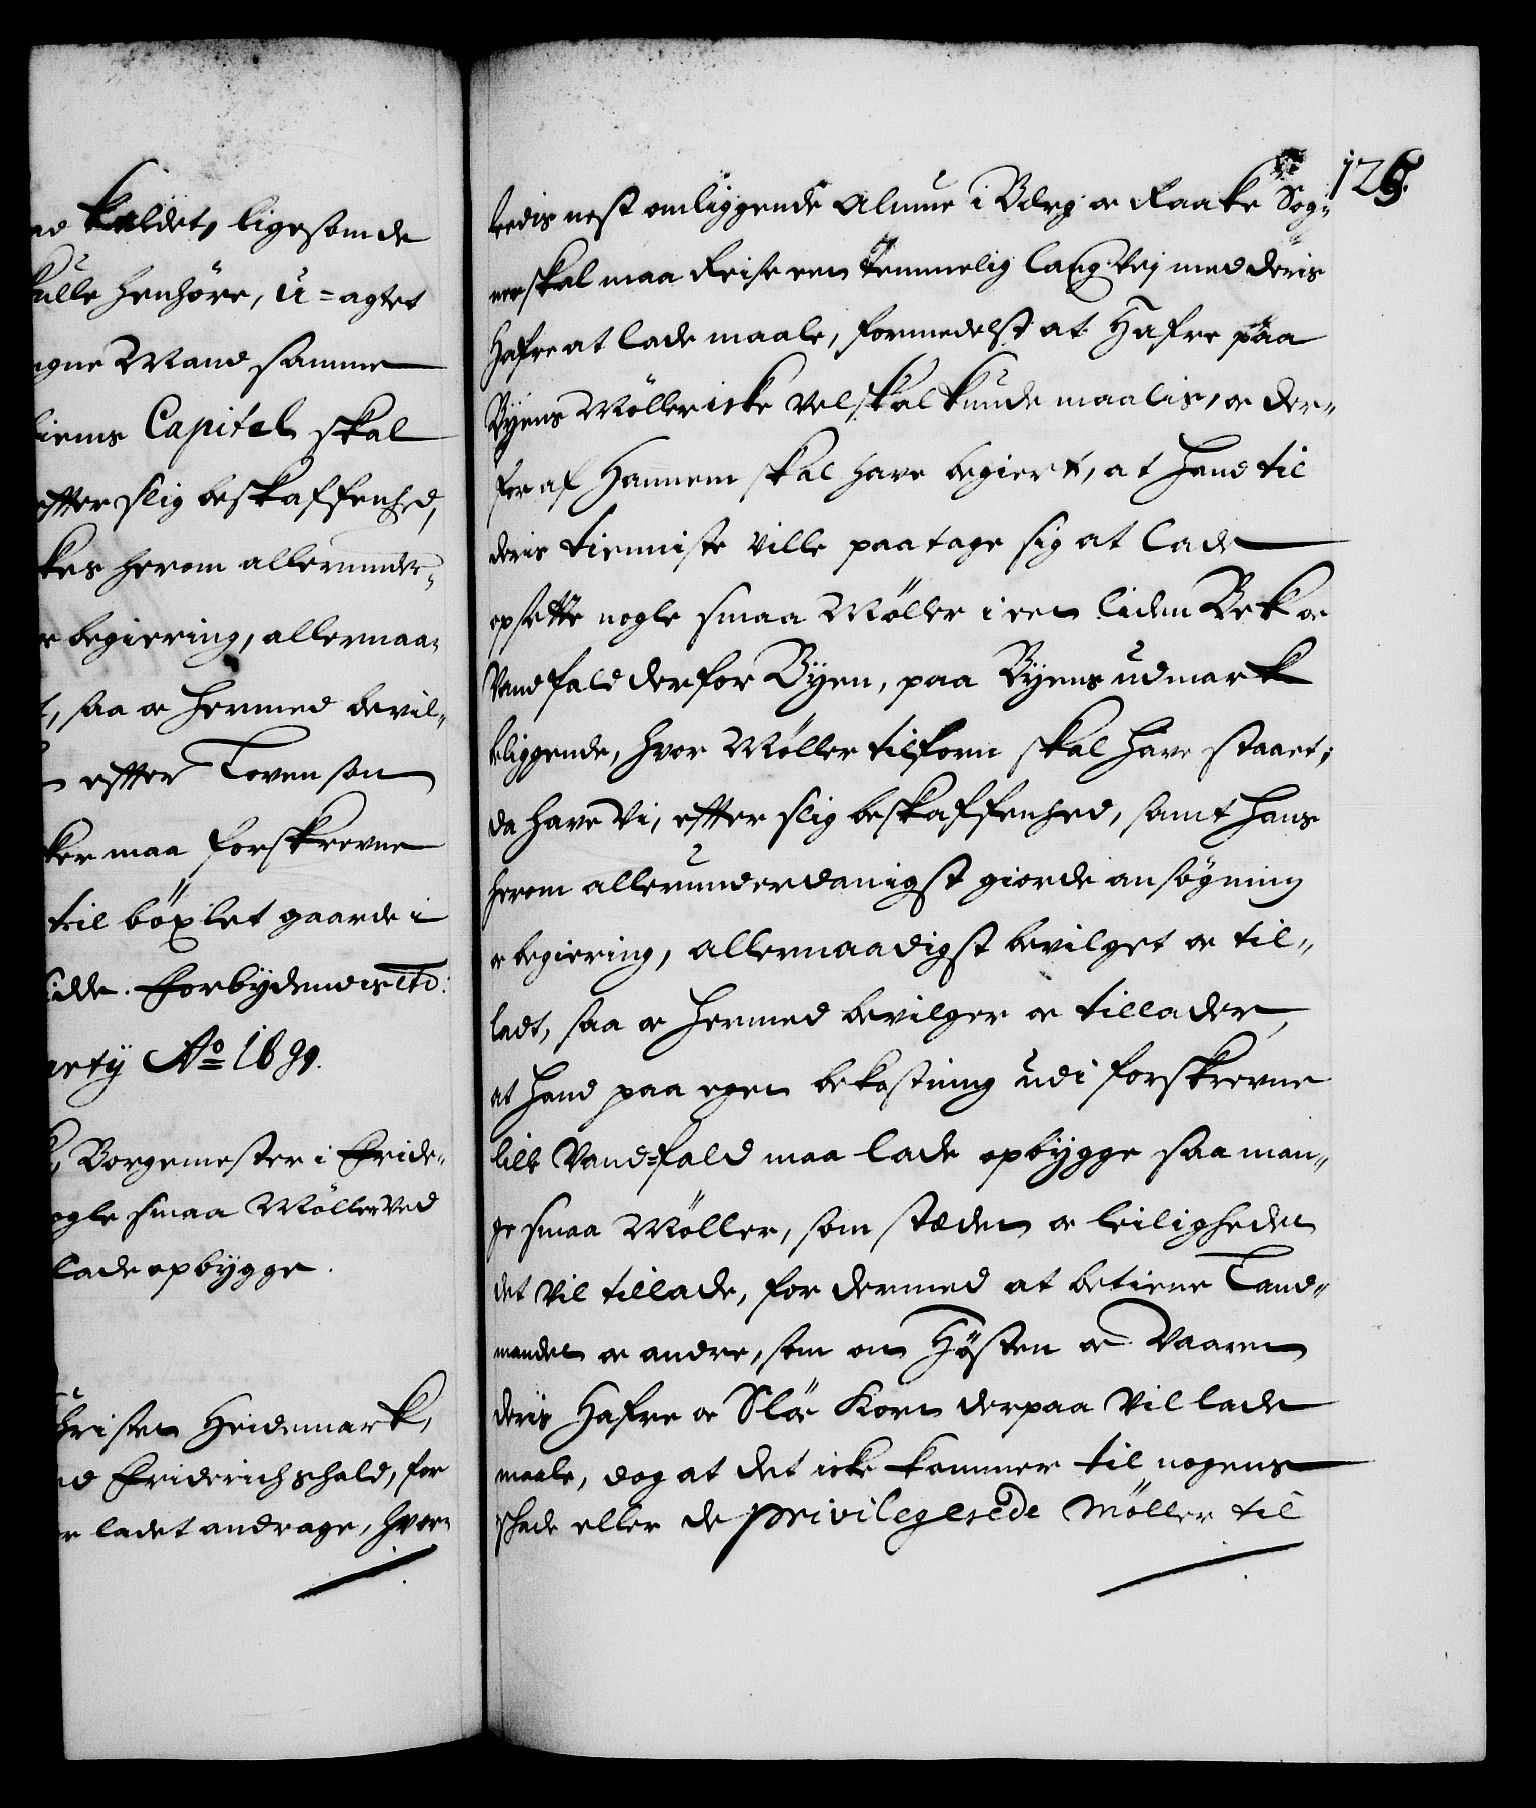 kaldet, ligesom de
skulle henhöre, u-agtet
egne Mand samme
Capital skal
efter slig beskaffenhed,
herom allerunder-
begiering, allernaa-
saa oc hermed bevil-
efter Loven som
maa forskrevne
til böxlet gaarde i
Forbydendis etc:
Ao 1691.
Borgemester i Fride-
nogle smaa Møller ved
lade opbygge.
Christen Heidemark,
Friderichshald, for
ladet andrage, hvor-
126.
ledis nest omliggende Almue i Berg oc Raake Sog-
ner skal maa Reise een temmelig lang Vej med deris
Hafre at lade maale, formedelst at Hafre paa
Byens Møller icke vel skal kunde maalis, oc der-
for af Hannem skal have begiert, at hand til
deris tienniste ville paatage sig at lade
opsette nogle smaa Møller i een liden Bek oc
Vandfald derfor Byen, paa Byens udmark
beliggende, hvor Møller tilforn skal have staaet;
da have Vi, efter slig beskaffenhed, samt hans
herom allerunderdanigst giorde ansøgning
oc begiering, allernaadigst bevilget oc til-
ladt, saa oc hermed bevilger oc tillader,
at hand paa egen bekostning udi forskrevne
lille Vand-fald maa lade opbygge saa man-
ge smaa Møller, som steden oc leiligheden
det vil tillade, for dermed at betiene Land-
manden oc andre, som om Høsten oc Vaaren
deris Hafre oc Slöe Korn derpaa vil lade
maale, dog at det icke kommer til nogens
skade eller de privilegerede Møller til